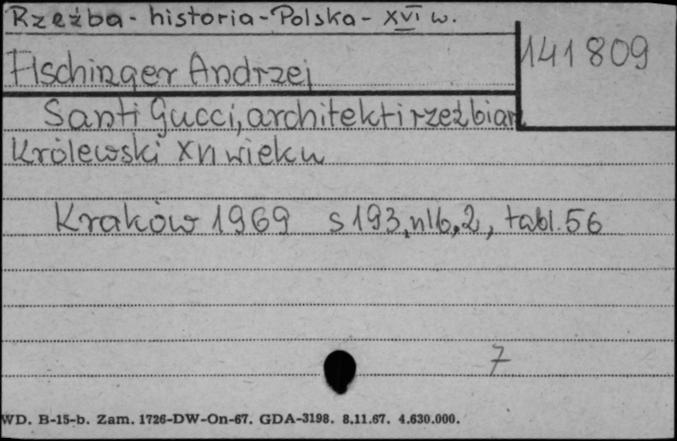 Rzeźba - historia - Polska - XVI w.
141809
Fischinger Andrzej
Santi Gucci, architekt i rzeźbiarz
Królewski XVI wieku
Kraków 1969 s 193, nlb, 2, tabl. 56
7
WD. B-15-b. Zam. 1726-DW-On-67. GDA-3198. 8.11.67. 4.630.000.